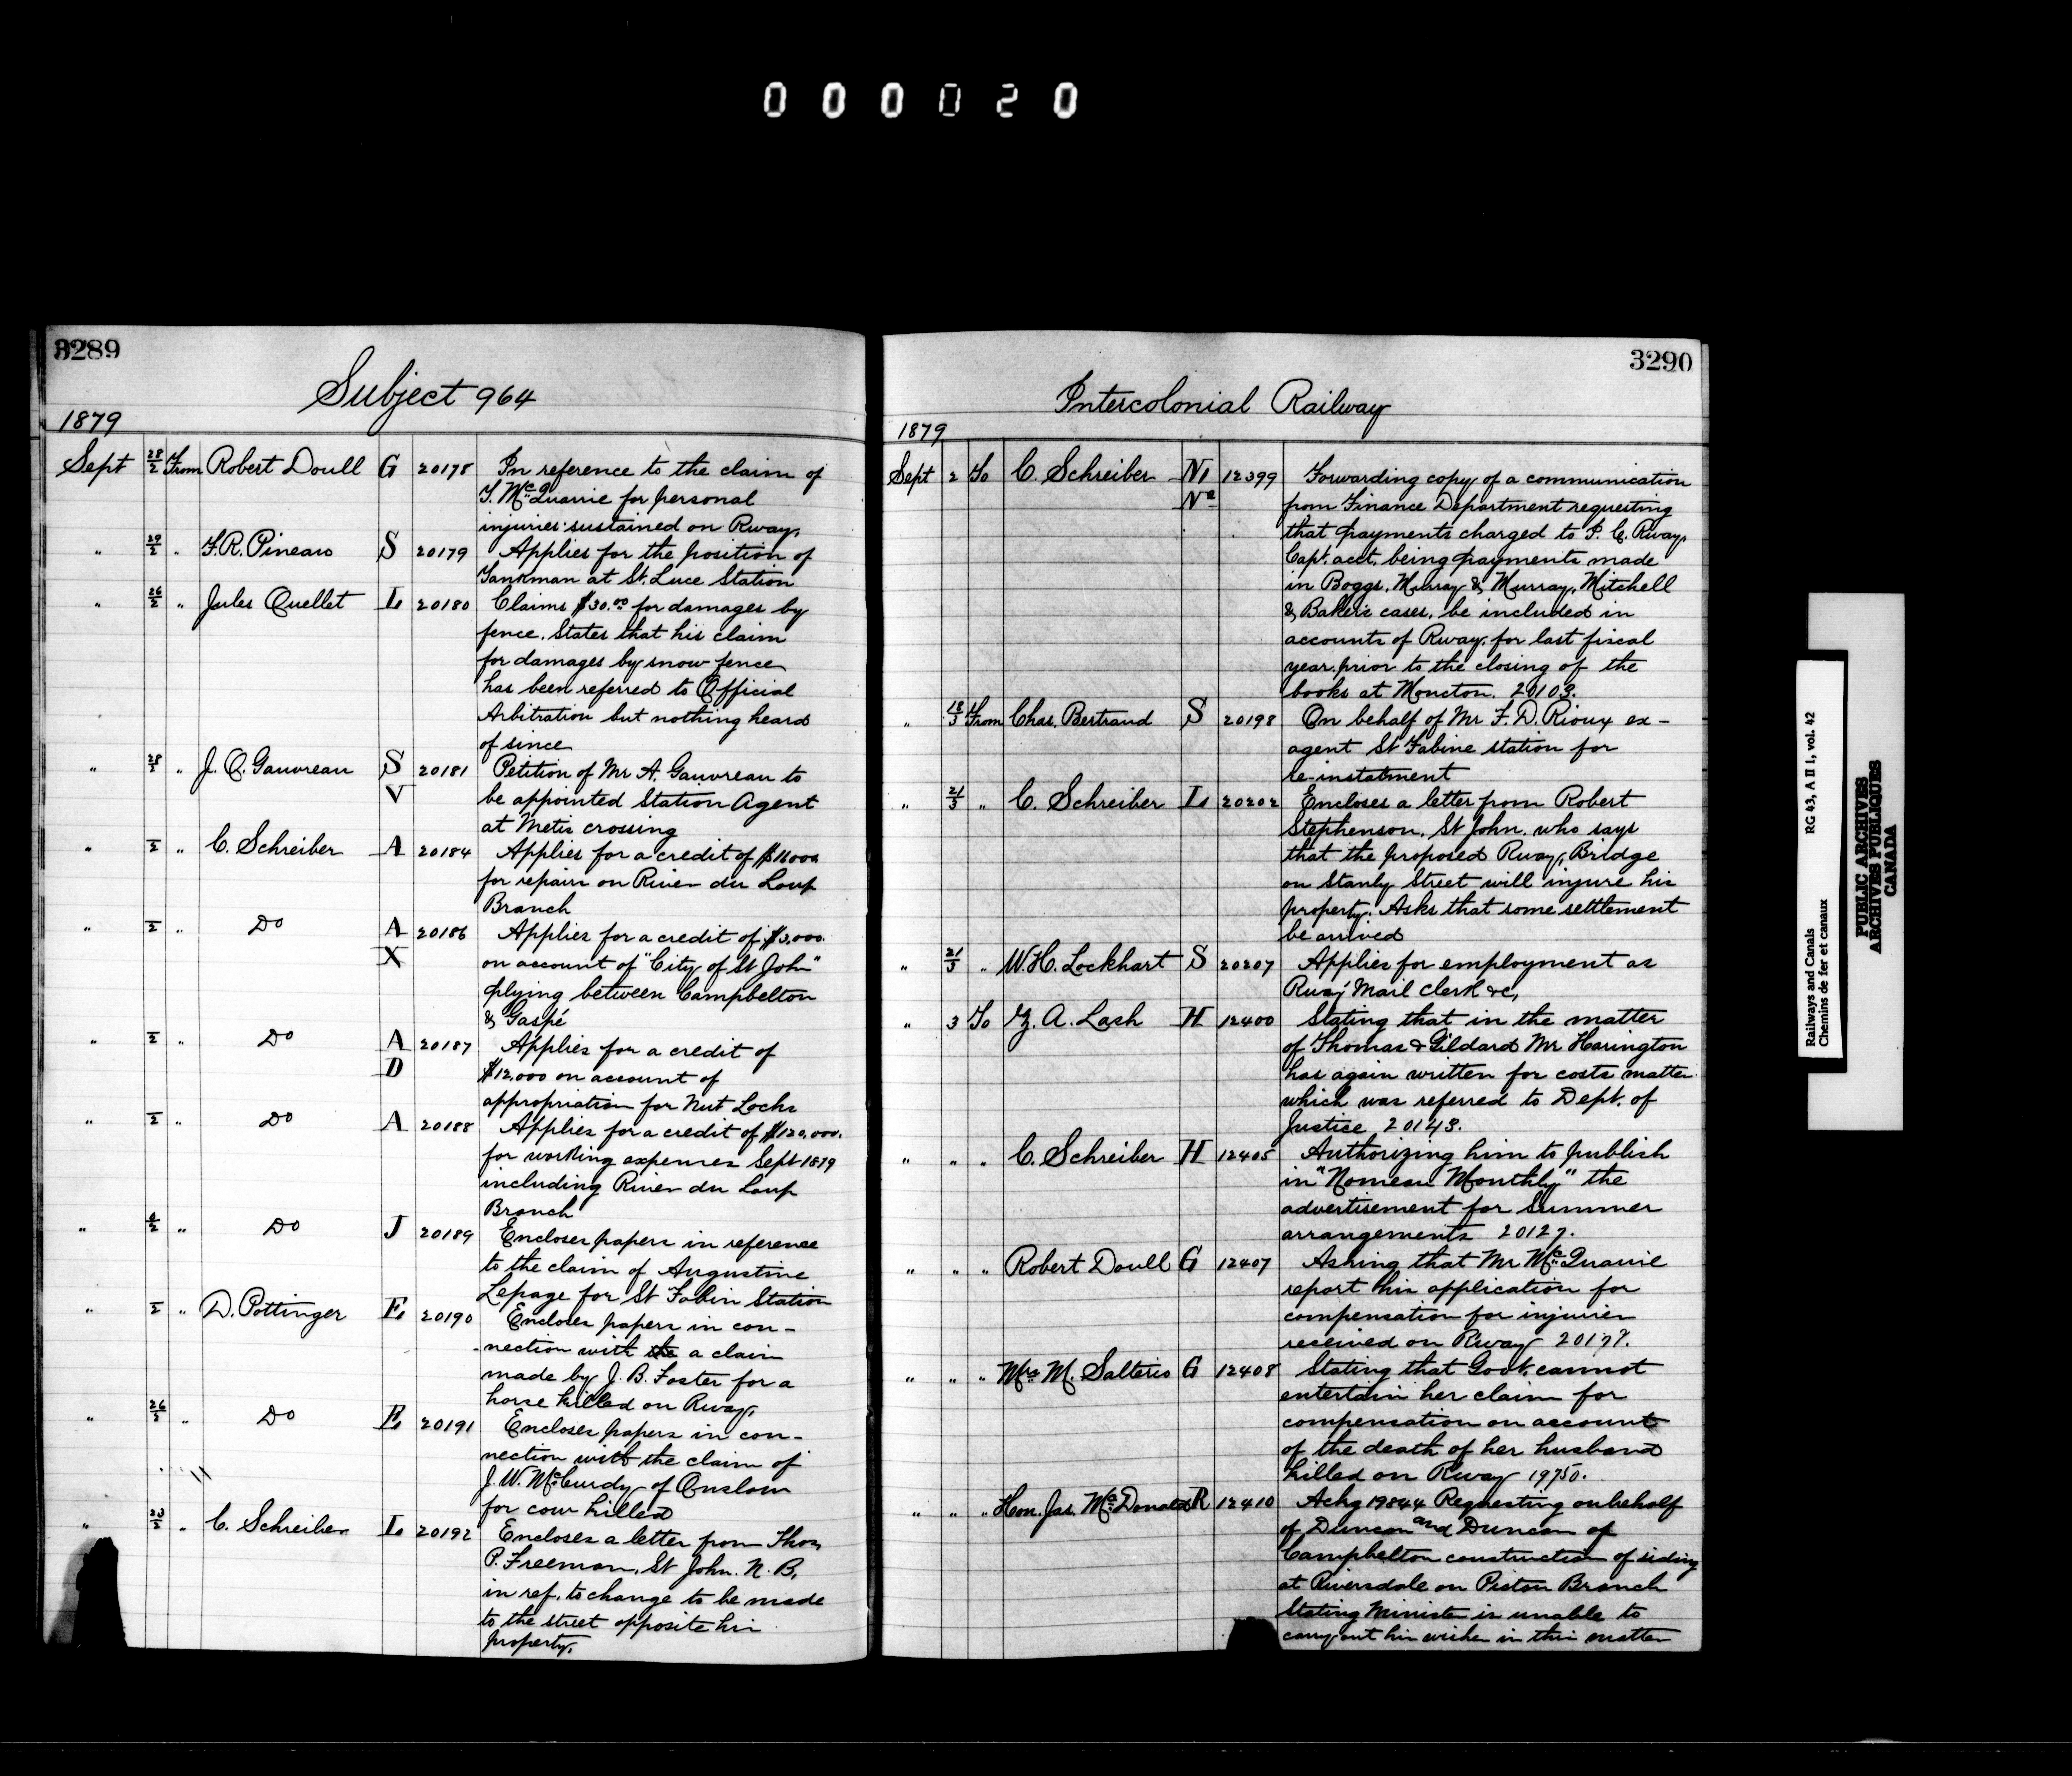 000020
3289
Subject 964
1879
Sept 28/2 From Robert Doull G 20178 In reference to the claim of
T. McQuarrie for personal
injuries sustained on Rway,
" 29/2 " F.R. Pineau S 20179 Applies for the position of
Tankman at St. Luce Station
" 26/2 " Jules Ouellet L 20180 Claims $30.00 for damages by
fence. States that his claim
for damages by snow fence
has been referred to Official
Arbitration but nothing heard
of since
" 28/2 " J. O. Gauvreau S 20181 Petition of Mr A. Gauvreau to
V be appointed Station Agent
at Metis crossing
" 2 " C. Schreiber A 20184 Applies for a credit of $16000
for repairs on River du Loup
Branch
" 2 " Do A 20186 Applies for a credit of $3,000.
X on account of "City of St John"
plying between Campbelton
& Gaspé
" 2 " Do A 20187 Applies for a credit of
D $12,000 on account of
appropriation for Nut Locks
" 2 " Do A 20188 Applies for a credit of $120,000.
for working expenses Sept 1879
including River du Loup
Branch
" 2 " Do J 20189 Encloses papers in reference
to the claim of Augustine
Lepage for St Fabin Station
" 2 " D. Pottinger E 20190 Encloses papers in con-
-nection with the a claim
made by J. B. Foster for a
horse killed on Rway,
" 26/2 " Do E 20191 Encloses papers in con-
nection with the claim of
J. W. McCurdy of Onslow
for cow killed
" " C. Schreiber L 20192 Encloses a letter from Thos,
P. Freeman, St John. N. B,
in ref. to change to be made
to the street opposite his
property.
3290
Intercolonial Railway
1879
Sept 2 To C. Schreiber N1 12399 Forwarding copy of a communication
from Finance Department requesting
that payments charged to I. C. Rway.
Capt. acct. being payments made
in Boggs, Murray & Murray, Mitchell
& Bakers cases, be included in
accounts of Rway. for last fiscal
year, prior to the closing of the
books at Moncton. 20103.
" 18/3 From Chas. Bertrand S 20198 On behalf of Mr F. D. Rioux ex-
agent St Fabine station for
re-instatment
" 21/3 " C. Schreiber L 20202 Encloses a letter from Robert
Stephenson, St John. who says
that the proposed Rway, Bridge
on Stanly Street will injure his
property. Asks that some settlement
be arrived
" 21/3 " W.H. Lockhart S 20207 Applies for employment as
Rway Mail Clerk &c,
" 3 To Z. A. Lash H 12400 Stating that in the matter
of Thomas & Gildard Mr Harington
has again written for costs matter
which was referred to Dept. of
Justice 20143.
" " " C. Schreiber H 12405 Authorizing him to publish
in "Nomean Monthly" the
advertisement for Summer
arrangements 20127.
" " " Robert Doull G 12407 Asking that Mr McQuarrie
report his application for
compensation for injuries
received on Rway 20178.
" " " Mrs M. Salteris G 12408 Stating that Govt. cannot
entertain her claim for
compensation on account
of the death of her husband
killed on Rway 19750.
" " " Hon. Jas. McDonald R 12410 Ackg 19844 Requesting on behalf
of Duncan and Duncan of
Campbelton construction of siding
at Riversdale on Picton Branch
Stating Minister is unable to
carry out his wishes in this matter
Railways and Canals RG 43, A II 1, vol. 42
Chemins de fer et canaux
PUBLIC ARCHIVES
ARCHIVES PUBLIQUES
CANADA